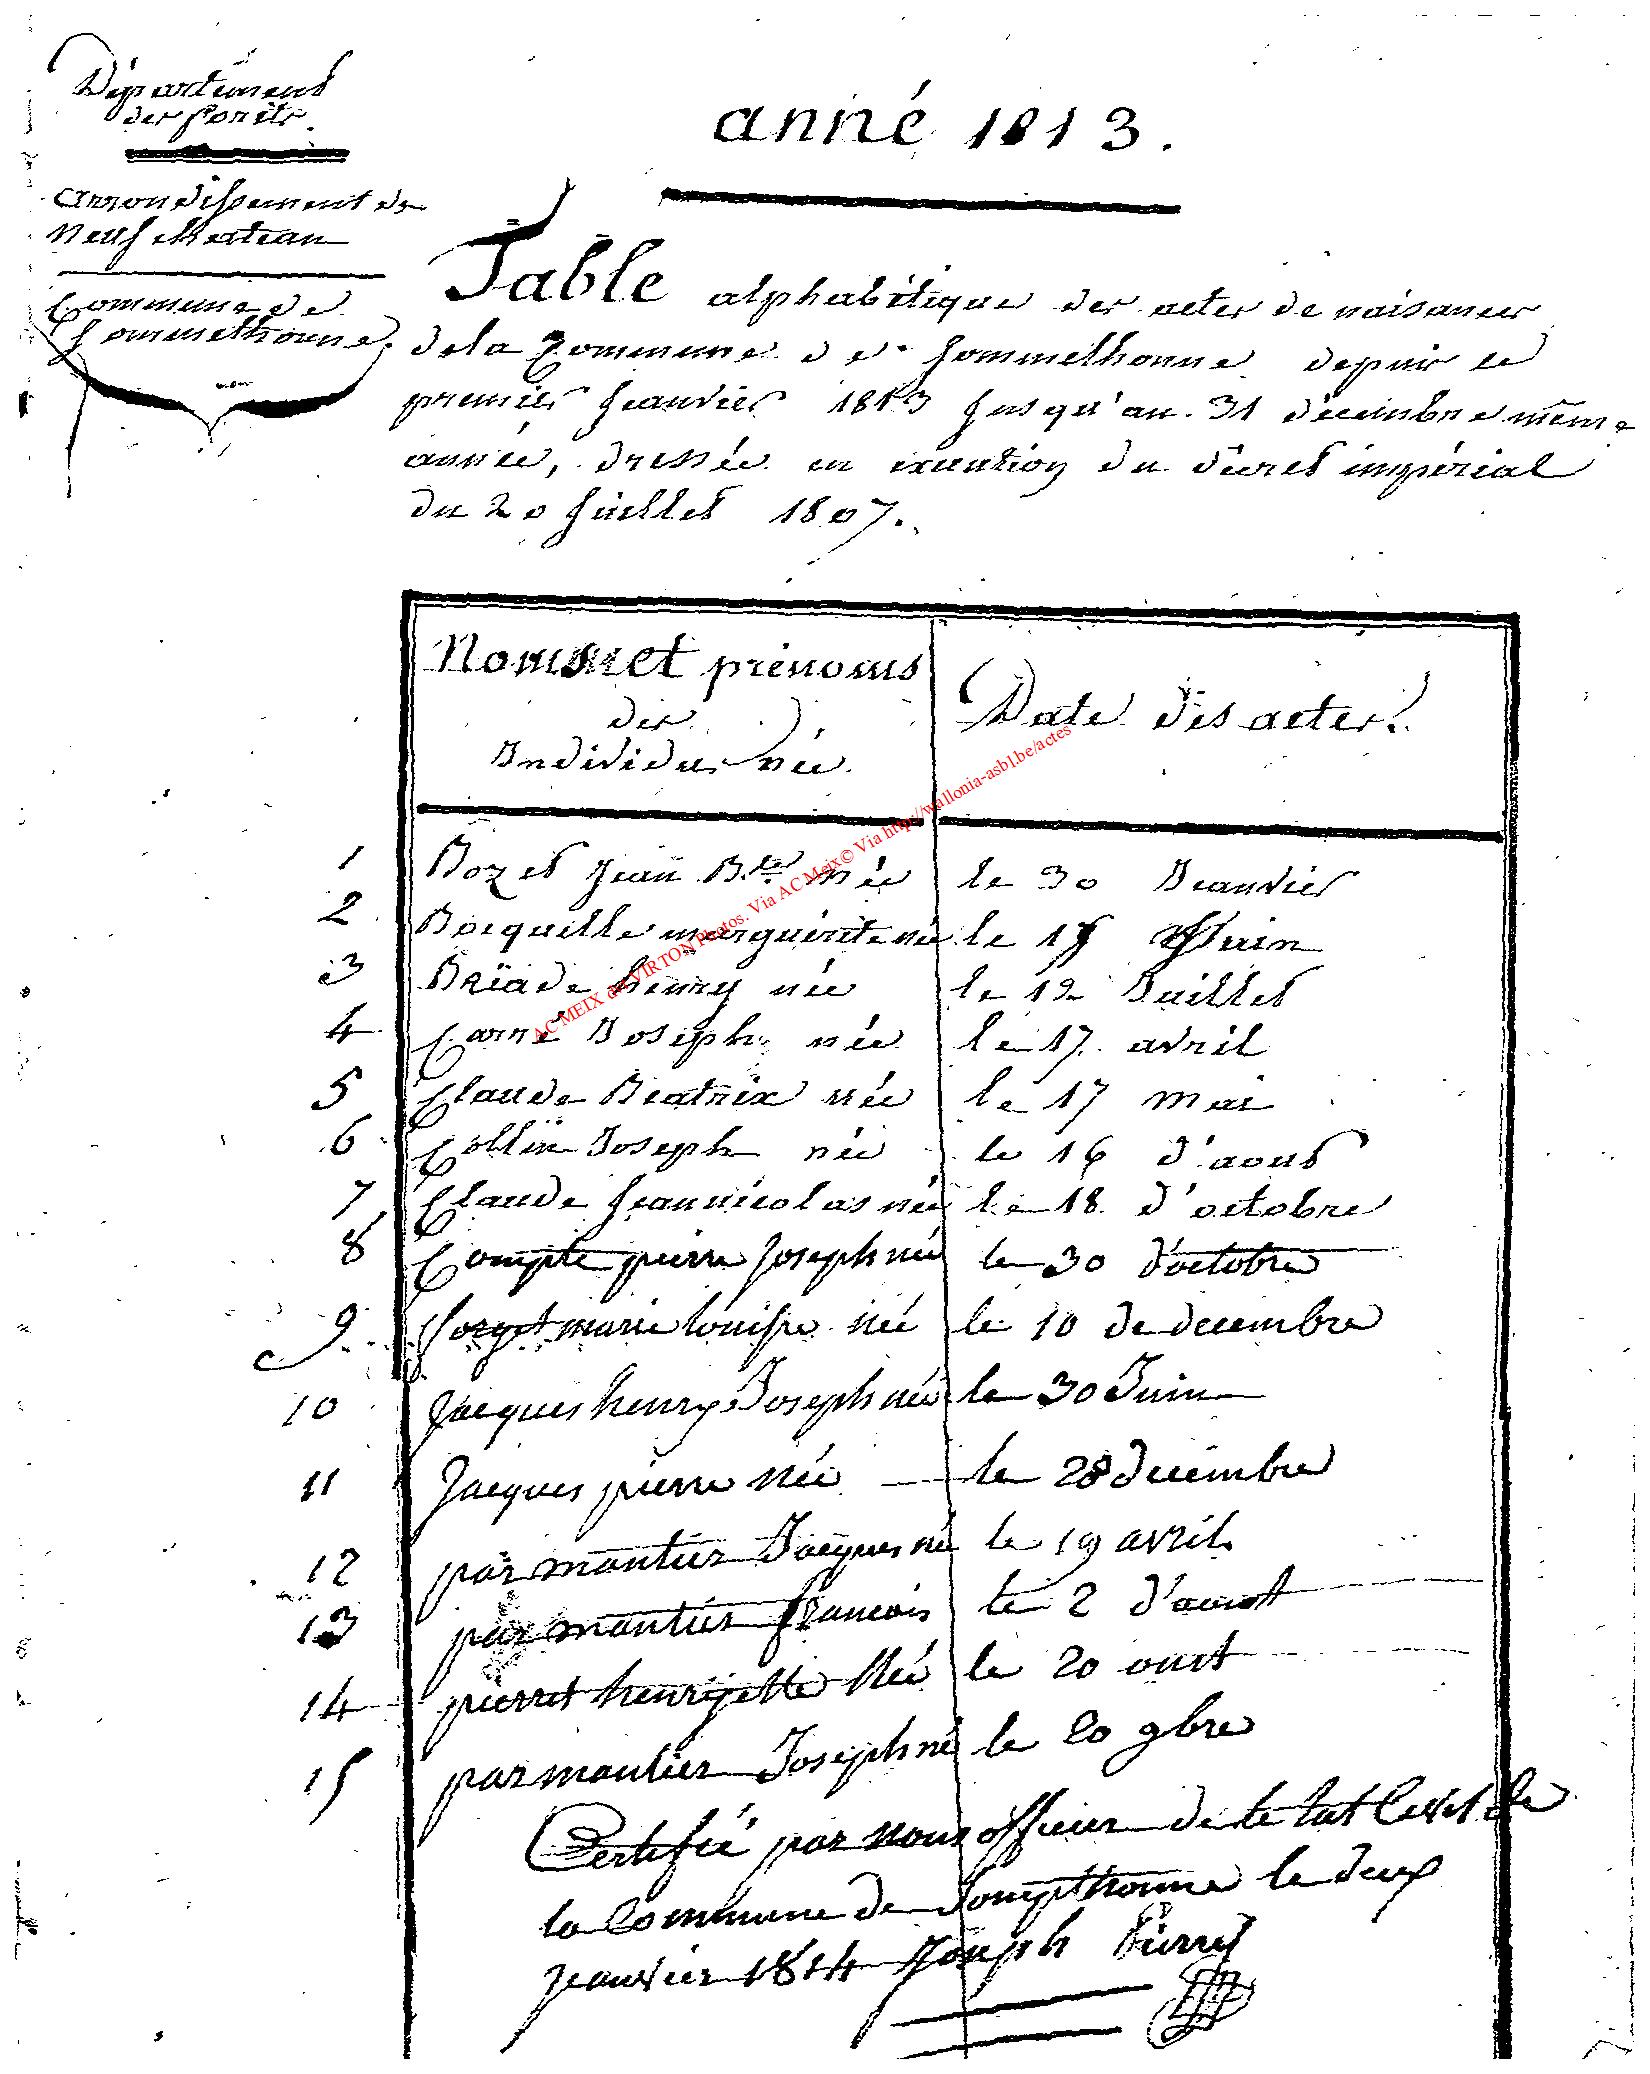 Département
des forêts
anné 1813.
arrondissement de
Neufchateau
Commune de
Sommethonne
Table alphabétique des actes de naisances
de la Commune de Sommethonne depuis le
premier Jeanvier 1813 Jusqu'au 31 décembre même
année, dressée en exécution du décret impérial
du 20 Juillet 1807.
Noms et prénoms
des
Individus née
Date des actes
1 Bozet Jean Bte née le 30 Jeanvier
2 Bocquille marguérite née le 15 Juin
3 Briade henry née le 12 Juillet
4 Carré Joseph née le 17 avril
5 Claude Beatrix née le 17 mai
6 Collin Joseph née le 16 d'aout
7 Claude Jean nicolas née le 18 d'octobre
8 Compte pierre Joseph née le 30 d'octobre
9 forget marie louise née le 10 de decembre
10 Jacques henry Joseph née le 30 Juin
11 Jacques pierre née le 28 decembre
12 parmantier Jacques né le 19 avril
13 parmantier francois le 2 d'aout
14 pierret henrijette née le 20 out
15 parmentier Joseph né le 20 9bre
Certifié par nous officier de le tat Civil de
la Commune de Sompthonne le deux
Jeanvier 1814 Joseph Pierret
AC MEIX dvt VIRTON Photos. Via AC Meix© Via http://wallonia-asbl.be/actes